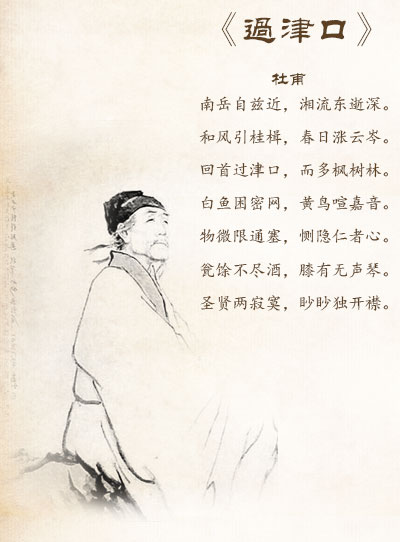 《過津口》
杜甫
南岳自兹近，湘流东逝深。
和风引桂楫，春日涨云岑。
回首过津口，而多枫树林。
白鱼困密网，黄鸟喧嘉音。
物微限通塞，恻隐仁者心。
瓮馀不尽酒，膝有无声琴。
圣贤两寂寞，眇眇独开襟。